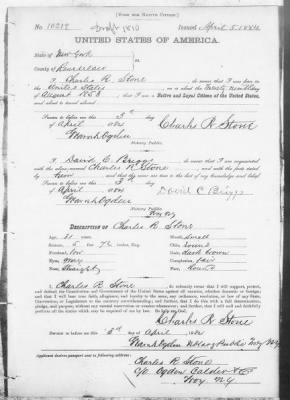 [FOR THE NATIVE CITIZEN.]
No. 10219 Issued April 5, 1884
UNITED STATES OF AMERICA.
State of New York
County of Rensselaer
I Charles R. Stone, do swear that I was born in
the United States on or about the
of August 1853, that I am a Native and Loyal Citizen of the United States,
and about to travel abroad.
Sworn to before me this 3d day
of April 1884
Charles R. Stone
Wm H Ogden
Notary Public.
I David C. Briggs, do swear that I am acquainted
with the above-named Charles R. Stone, and with the facts stated
by him, and that the same are true to the best of my knowledge and belief.
Sworn to before me this 3d day
of April 1884
David C Briggs
Wm H Ogden
Notary Public.
Troy NY
DESCRIPTION OF Charles R. Stone
Age, 31 years. Mouth, small
Stature, 5 feet inches, Eng. Chin, round
Forehead, low Hair, dark brown
Eyes, gray Complexion, fair
Nose, straight Face,
I, Charles R. Stone, do solemnly swear that I will support, protect,
and defend the Constitution and Government of the United States against all enemies, whether domestic or foreign;
and that I will bear true faith, allegiance, and loyalty to the same, any ordinance, resolution, or law of any State,
Convention, or Legislature to the contrary notwithstanding; and further, that I do this with a full determination,
pledge, and purpose, without any mental reservation or evasion whatsoever; and further, that I will well and faithfully
perform all the duties which may be required of me by law. So help me God.
Charles R. Stone
Sworn to before me this 3d day of April, 1884
Wm H Ogden Notary Public Troy NY
Applicant desires passport sent to following address:
Charles R. Stone
c/o Ogden Calder & Co
Troy N.Y.